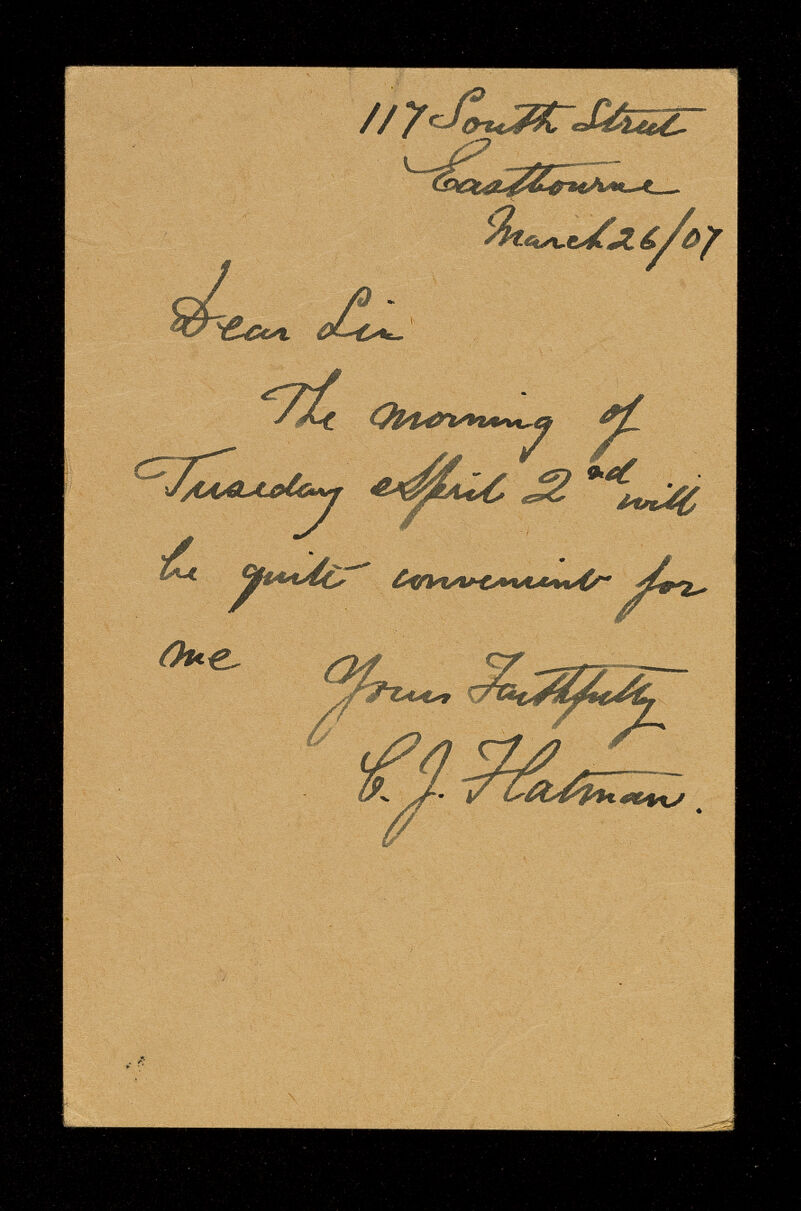 117 South Street
Eastbourne
March 26/07
Dear Sir
The morning of
Tuseday April 2nd will
be quite convenient for
me
Yours Faithfully
C. J. Flatman.